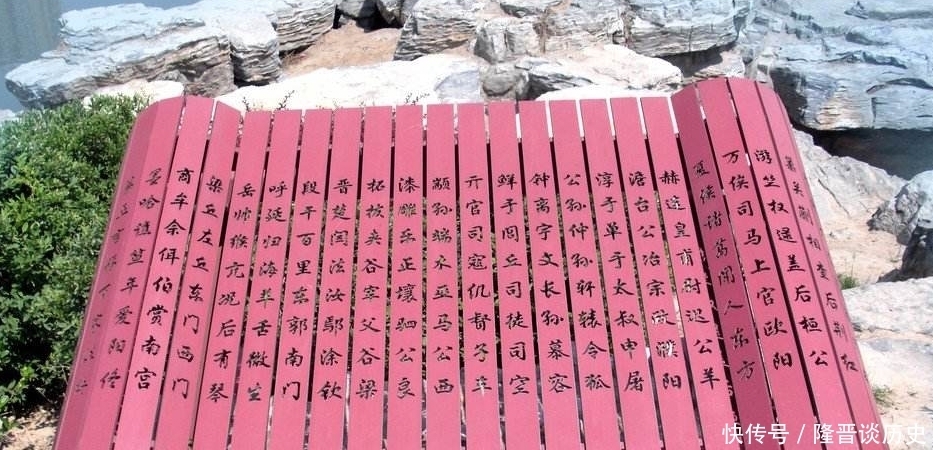 关相查后荆红
游竺权逯盖后桓公
万俟司马上官欧阳
夏侯诸葛闻人东方
赫连皇甫尉迟公羊
澹台公冶宗政濮阳
淳于单于太叔申屠
公孙仲孙轩辕令狐
钟离宇文长孙慕容
鲜于闾丘司徒司空
亓官司寇仉督子车
颛孙端木巫马公西
漆雕乐正壤驷公良
拓拔夹谷宰父谷梁
晋楚闫法汝鄢涂钦
段干百里东郭南门
呼延归海羊舌微生
岳帅缑亢况后有琴
梁丘左丘东门西门
商牟佘佴伯赏南宫
墨哈谯笪年爱阳佟
快传号/隆晋谈历史